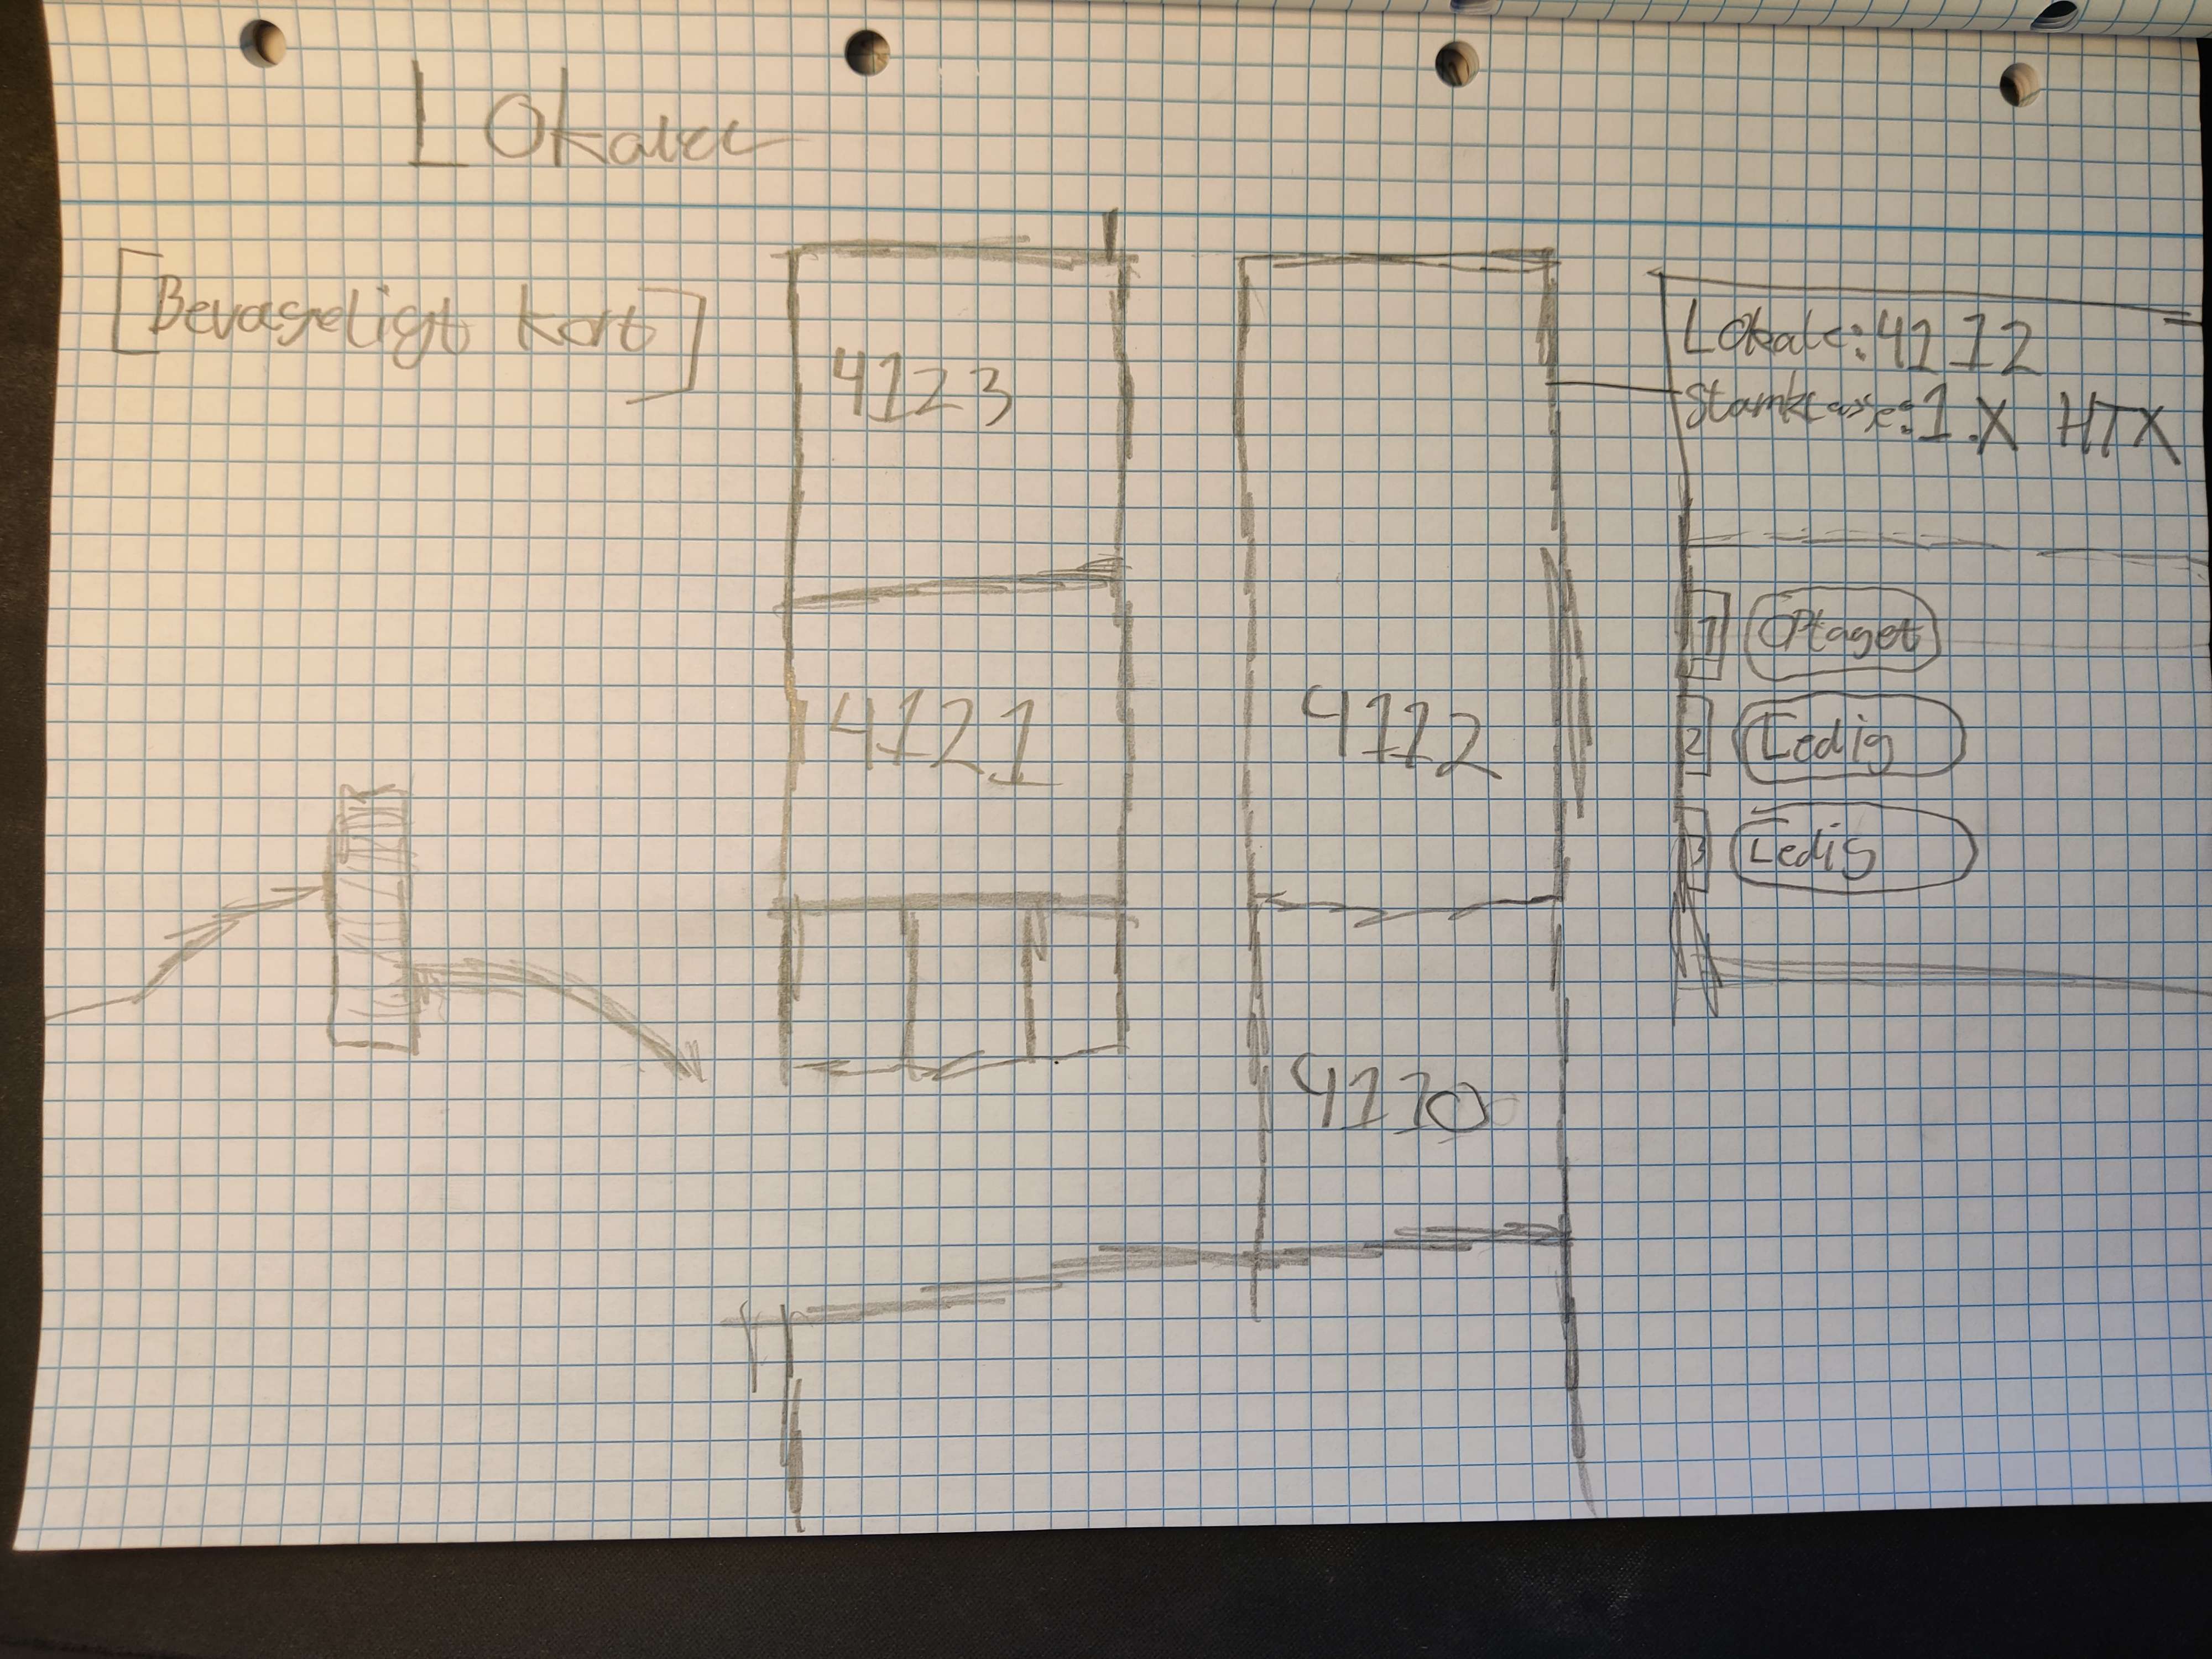 Lokaler
[Bevageligt kort]
4123
4121
4112
4110
Lokale: 4112
Stamklasse: 1.X HTX
1 Optaget
2 Ledig
3 Ledig